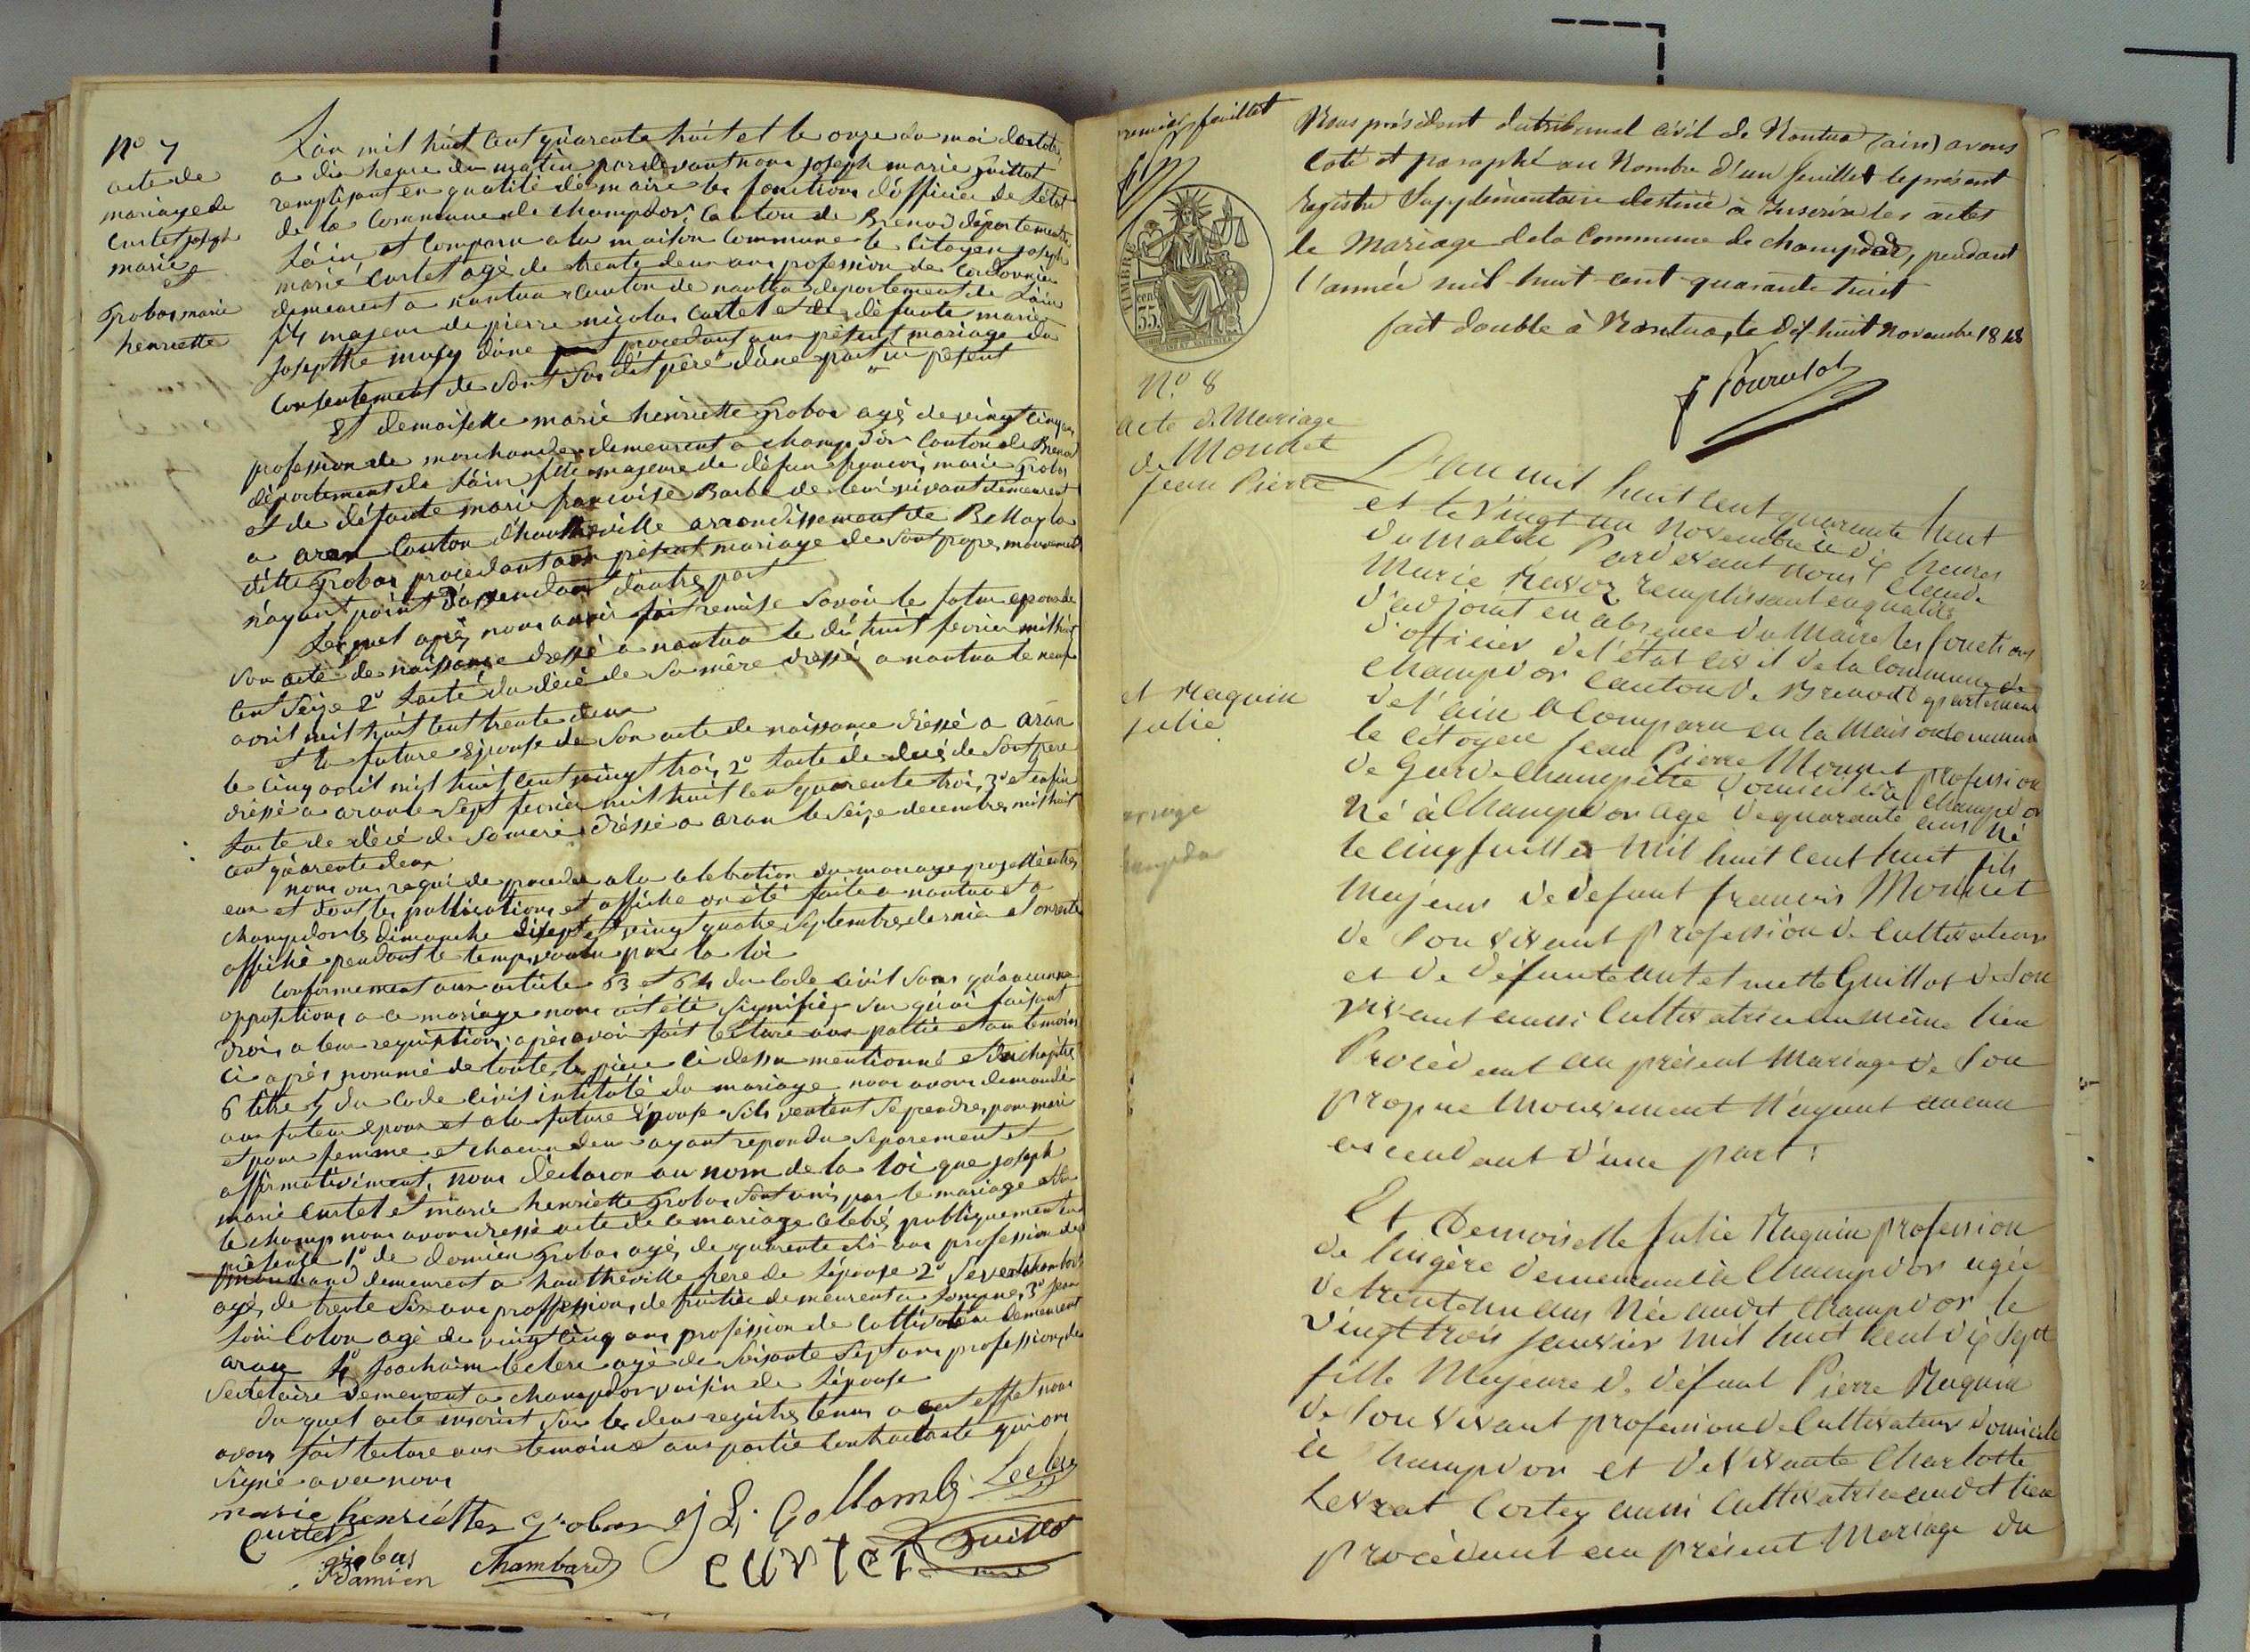 No 7
acte de
mariage de
Curtet joseph
marie
et
Grobas marie
henriette
L'an mil huit cent quarente huit et le onze du moi doctobre
a dix heure du matin pardevant nous joseph marie guillot
remplisant en qualité de maire les fonctions dofficier de l'état
de la Commune de Champdor, Canton de Brenod département de
L'ain et Comparu a la maison Commune le Citoyen joseph
marie Curtet agé de trente deux ans profession de Cordonnier
demeurent a nantua Canton de nantua département de L'ain
fils majeur de pierre nicolas Curtet et de défunte marie
Josepthe musy dune procedant au présent mariage du
Consentement de sont susdit père d'une part ici présent
Et demoiselle marie henriette Grobas agé de vingt cinq ans
profession de marchande demeurent a champdor Canton de Brenod
département de L'ain fille majeure de défun françois marie Grobas
et de défunte marie françoise Barbe de leur vivant demeurent
a aran Canton d'hautheville arrondissement de Bellay la
ditte Grobas procedant au présent mariage de sont propre mouvement
n'ayant point d'assendant d'autre part
Lequel après nous avoir fait remise Savoir le futur epoux de
son acte de naissance dressé a nantua le dix huit fevrier mil huit
cent Seize 2º l'acte du décé de sa mère dressé a nantua le neuf
avril mil huit cent trente deux
et la future épouse de son acte de naissance dressé a aran
le cinq avril mil huit cent vingt trois 2º l'acte de décé de sont père
dressé a aran le sept fevrier mil huit cen quarente trois 3º et enfin
l'acte de décé de sa mère dressé a aran le seize decembre mil huit
cent quarente deux
nous ons requi de proceder a la celebration du mariage projetté entre
eux et dont les publications et affiche on été faite a nantua et a
champdor les dimanche dixsept et vingt quatre septembre dernier et on resté
affiché pendant le temps voulu par la loi
Conformement aux article 63 et 64 du Code civil sans qu'aucunne
oppositions a ce mariage nous ait été signifiés sur quoi faisant
droit a leur requisition; après avoir fait lecture aux partie et aux temoins
ci après nommé de toute les pièce ci dessu mentionné et du chapitre
6 titre 5 du Code civil intitulé du mariage nous avons demandé
aux futeur epoux et a la future épouse s'ils veulent se prendre pour mari
et pour femme et chacun deux ayant repondu séparement et
affirmativement, nous déclaron au nom de la loi que joseph
marie Curtet et marie henriette Grobas sont unis par le mariage et sur
le champ nous avons dressé acte de ce mariage célébré publiquement en
présence 1º de Damien Grobas agé de quarente six ans profession de
marchand demeurent a hautheville frere de l'épouse 2º Chambard
agé de trente six ans proffession de demeurent a 3º Jean
agé de vingt cinq ans profession de Cultivateur demeurent
aran 4º Joachaim leclerc agé de soixante sept ans profession de
Secretaire demeurent a champdor voisin de l'épouse
Du quel acte inscrit sur les deux registres tenus a cet effet nous
avons fait lecture aux temoins et aux partie Contractante qui on
signé avec nous
marie henriette Grobas j L. Collomb Leclerc
Curtet
grobas
Damien Chambard curtet Guillot
premier feuillet
Nous président du tribunal civil de Nantua (ain) avons
Coté et paraphé au Nombre d'un feuillet le présent
registre Supplémentaire destiné à Inscrire les actes
de Mariage de la Commune de champdor, pendant
l'année mil huit cent quarante huit
fait double à Nantua, le dix huit Novembre 1848
TIMBRE
35 cent
No. 8
acte d. Mariage
de Monnet
Jean Pierre
et Maguin
Julie
L'an mil huit cent quarente huit
et le vingt un Novembre à dix heures
du Matin Pardevant nous Claude
Marie Ravoz remplissant en qualité
d'adjoint en absence du Maire les fonctions
d'officier de l'état civil de la Commune de
Champdor Canton de Brenod département
de l'ain a Comparu en la Maison Commune
le citoyen Jean Pierre Monnet profession
de Garde Champêtre domicilié à Champdor
Né à Champdor agé de quarante ans né
le cinq Juillet Mil huit cent huit fils
Majeur de défunt francois Monnet
de son vivant profession de Cultivateur
et de défunte antelmette Guillot de son
vivant aussi Cultivatrice au même lieu
Procédent au présent Mariage de son
propre Mouvement n'ayant aucun
ascendant d'une part :
Et Demoiselle Julie Maguin profession
de lingère demeurant à Champdor agée
de trente un ans Née audit Champdor le
vingt trois Janvier mil huit cent dix sept
fille Majeure de défunt Pierre Maguin
de son vivant profession de Cultivateur domicilié
à Champdor et de vivante Charlotte
Levrat Cortey aussi Cultivatrice audit lieu
procédant au présent Mariage du